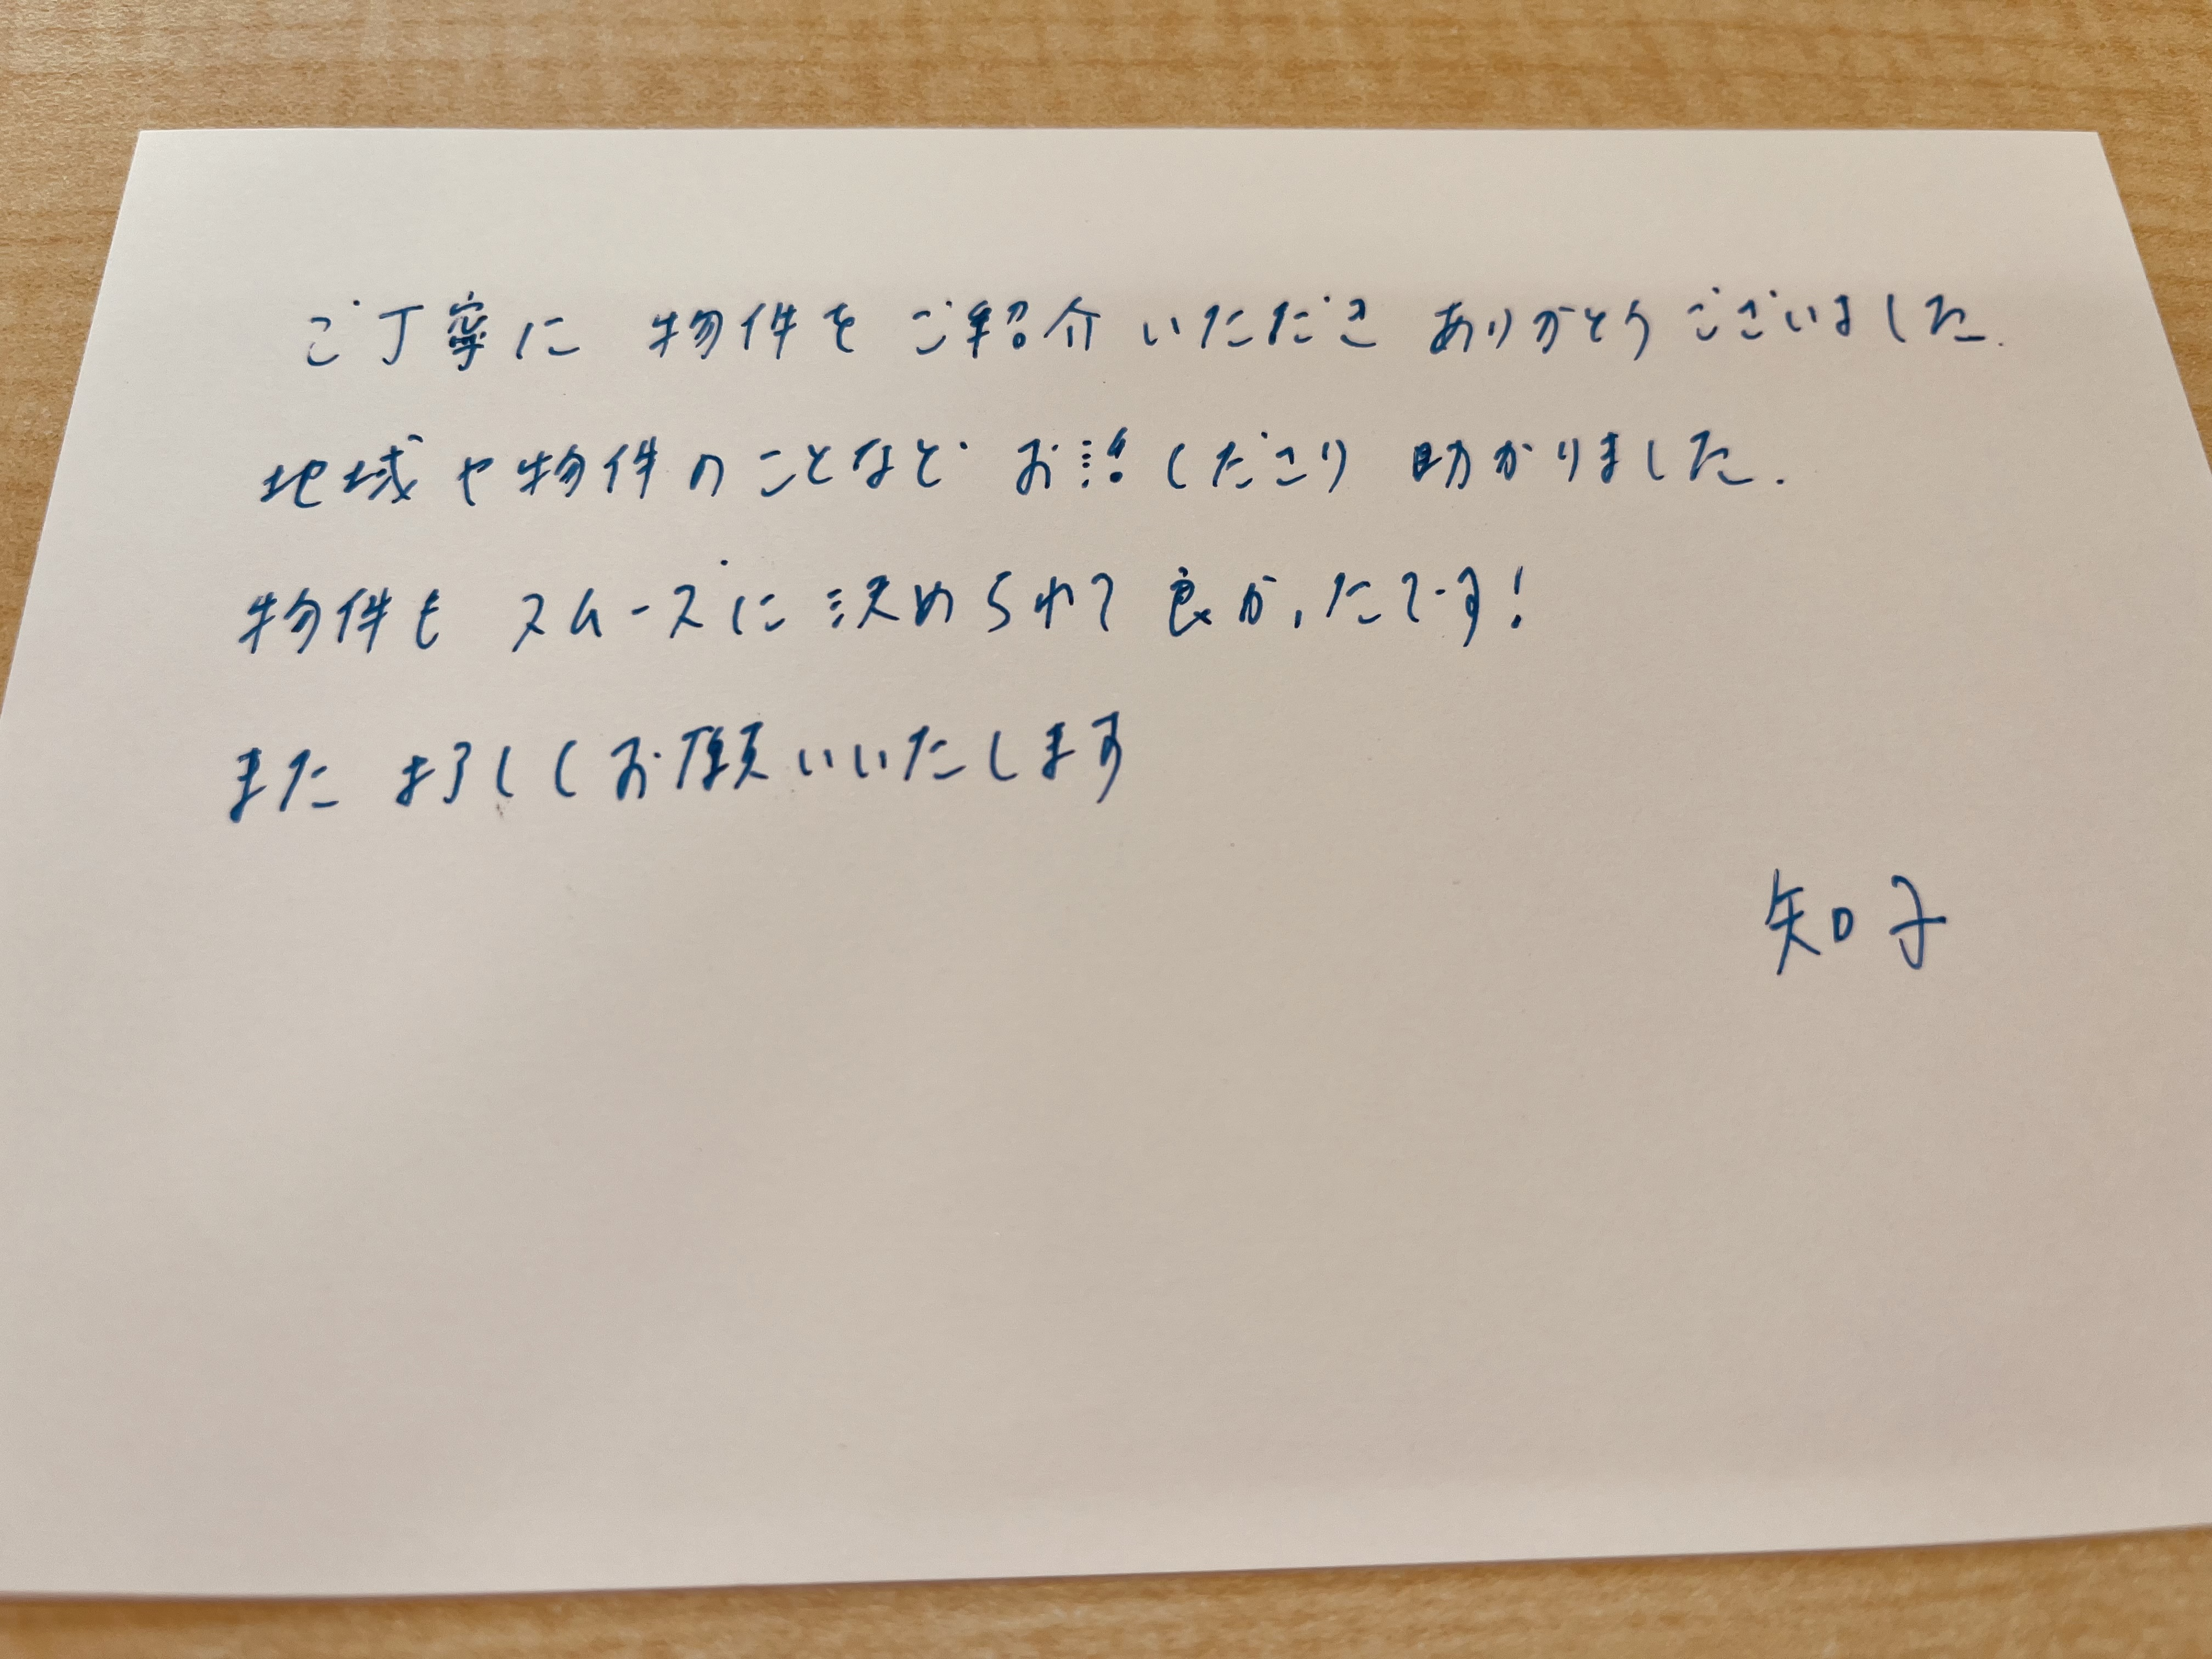 ご丁寧に 物件を ご紹介 いただき ありがとう ございました.
地域や物件のことなど お話くださり 助かりました.
物件も スムーズに決められて 良かったです!
また よろしくお願いいたします
知子